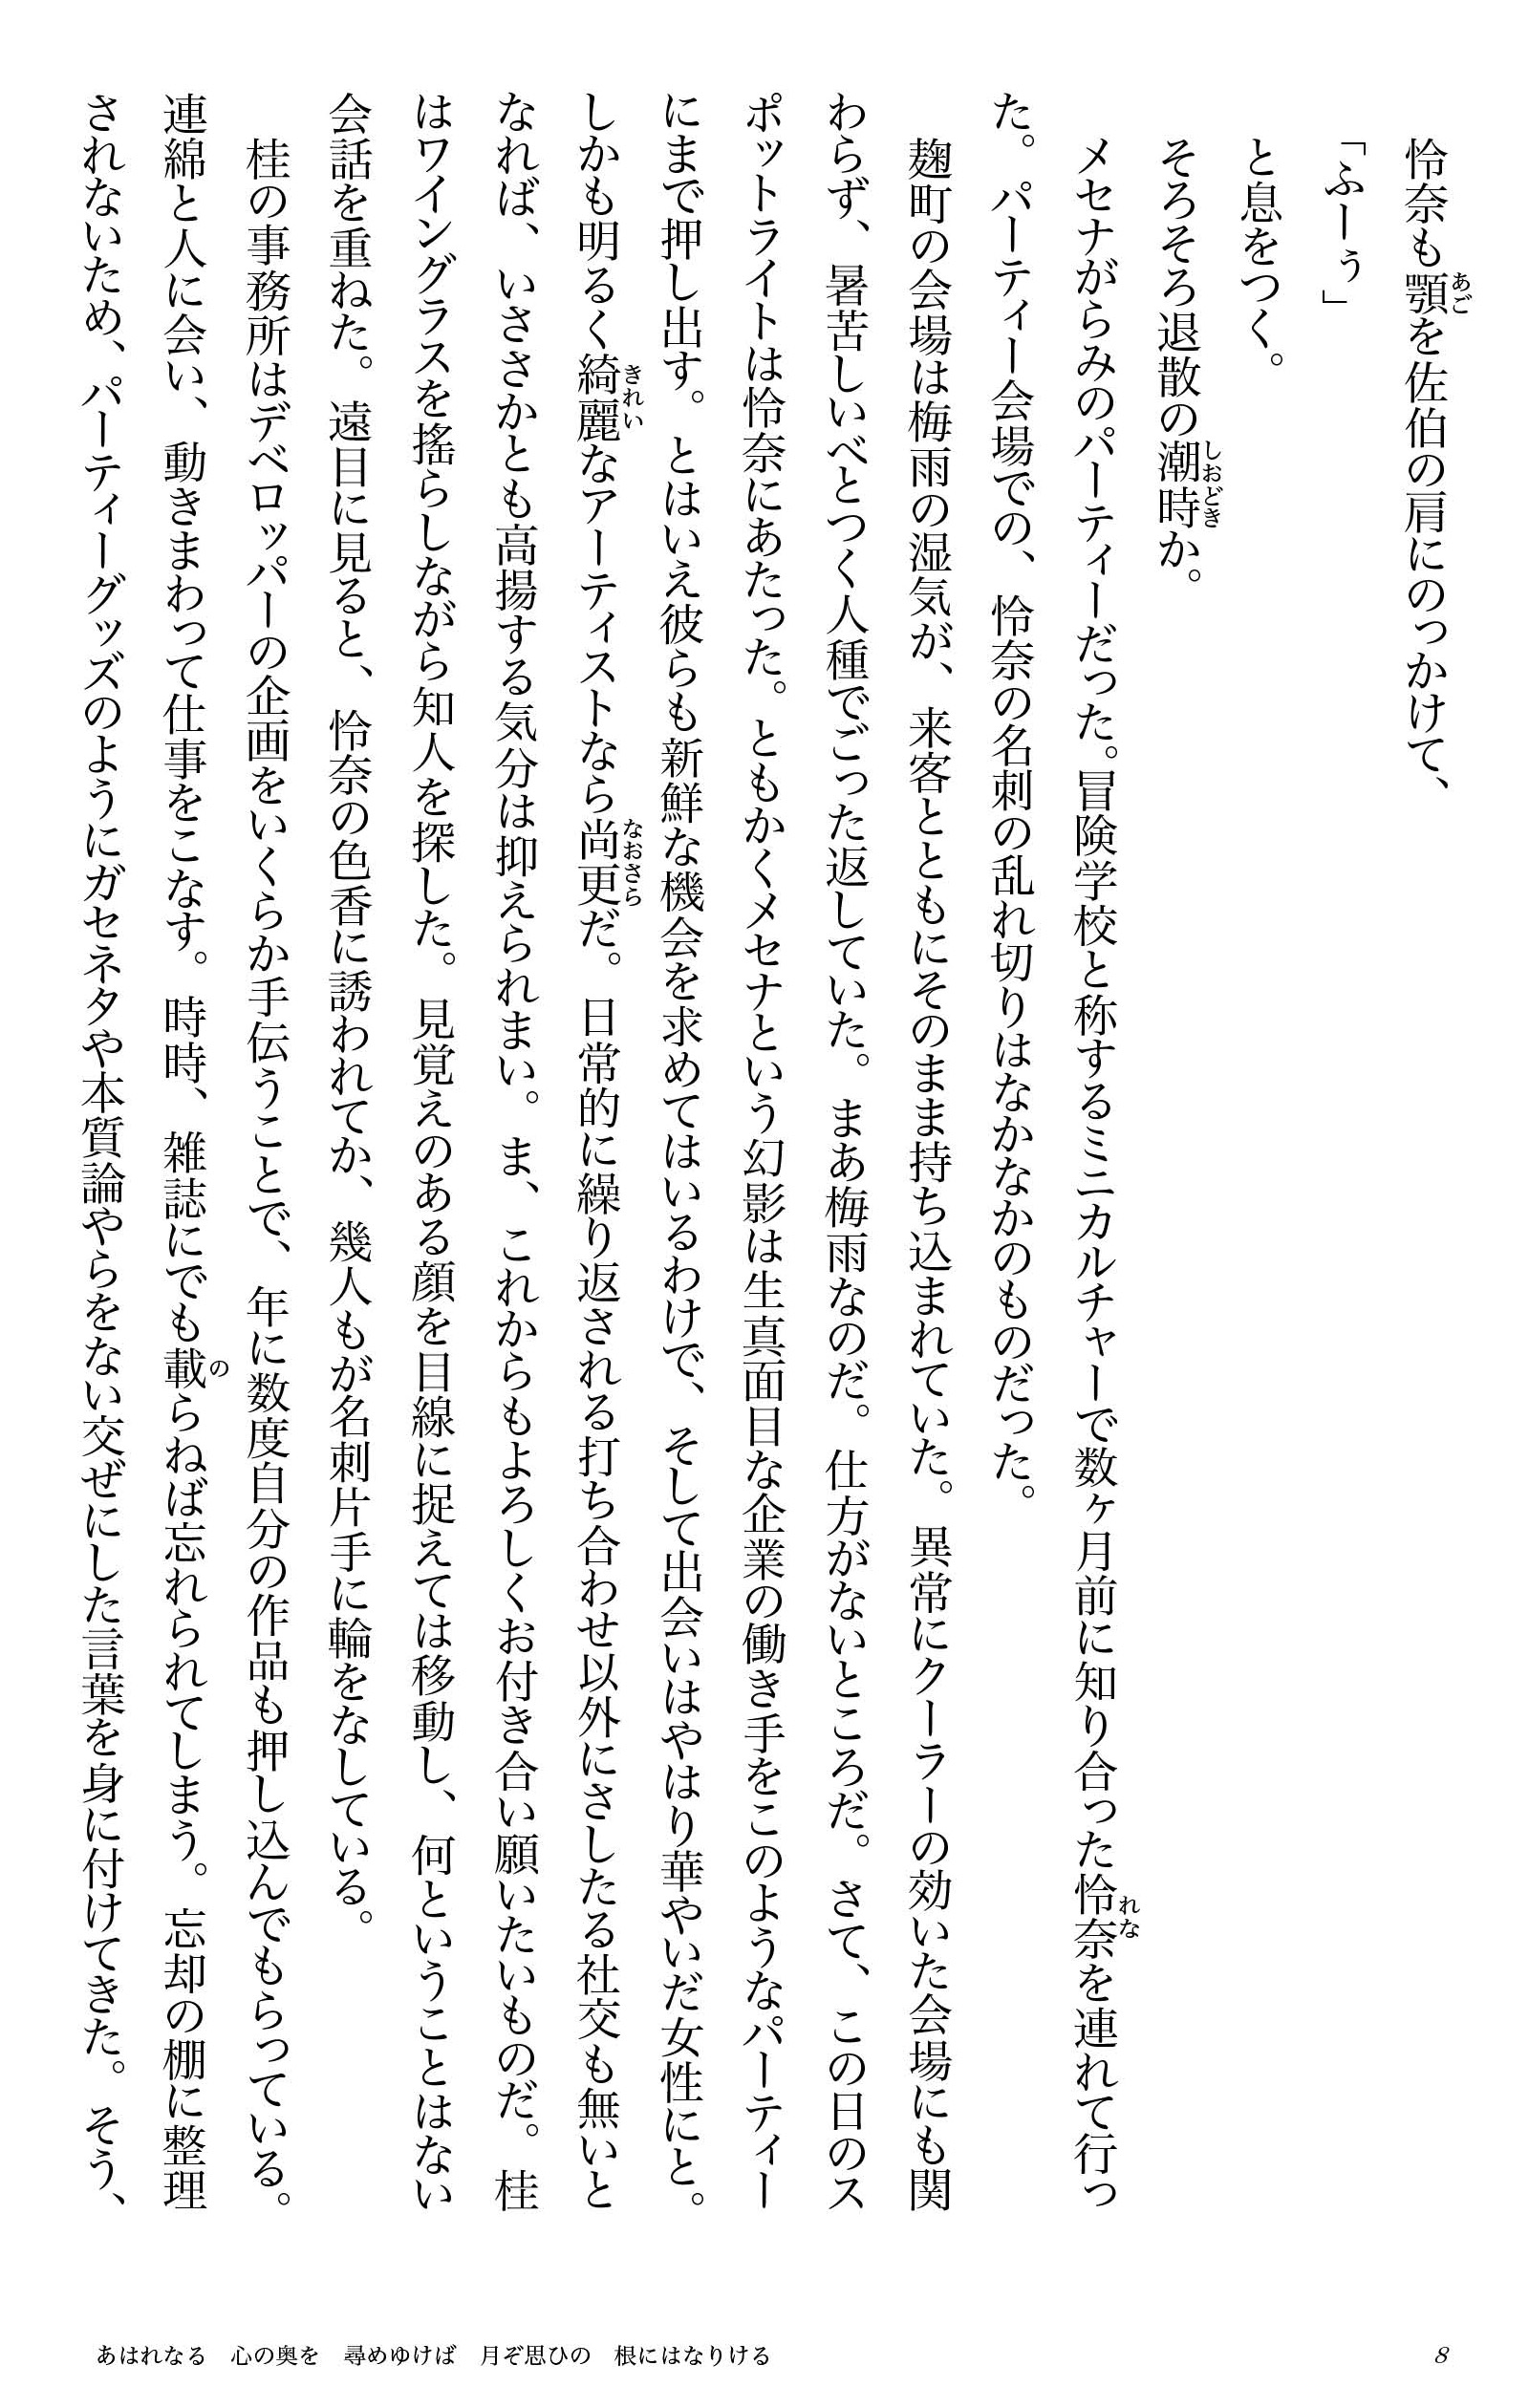 怜奈も顎を佐伯の肩にのっかけて、
「ふーぅ」
と息をつく。
そろそろ退散の潮時か。
メセナがらみのパーティーだった。冒険学校と称するミニカルチャーで数ヶ月前に知り合った怜奈を連れて行っ
た。パーティー会場での、怜奈の名刺の乱れ切りはなかなかのものだった。
麹町の会場は梅雨の湿気が、来客とともにそのまま持ち込まれていた。異常にクーラーの効いた会場にも関
わらず、暑苦しいべとつく人種でごった返していた。まあ梅雨なのだ。仕方がないところだ。さて、この日のス
ポットライトは怜奈にあたった。ともかくメセナという幻影は生真面目な企業の働き手をこのようなパーティー
にまで押し出す。とはいえ彼らも新鮮な機会を求めてはいるわけで、そして出会いはやはり華やいだ女性にと。
しかも明るく綺麗なアーティストなら尚更だ。日常的に繰り返される打ち合わせ以外にさしたる社交も無いと
なれば、いささかとも高揚する気分は抑えられまい。ま、これからもよろしくお付き合い願いたいものだ。桂
はワイングラスを搖らしながら知人を探した。見覚えのある顔を目線に捉えては移動し、何ということはない
会話を重ねた。遠目に見ると、怜奈の色香に誘われてか、幾人もが名刺片手に輪をなしている。
桂の事務所はデベロッパーの企画をいくらか手伝うことで、年に数度自分の作品も押し込んでもらっている。
連綿と人に会い、動きまわって仕事をこなす。時時、雑誌にでも載らねば忘れられてしまう。忘却の棚に整理
されないため、パーティーグッズのようにガセネタや本質論やらをない交ぜにした言葉を身に付けてきた。そう、
あはれなる　心の奥を　尋めゆけば　月ぞ思ひの　根にはなりける
8